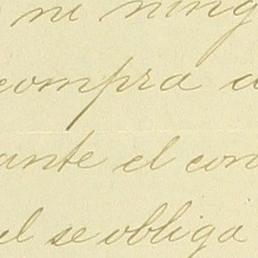 ni ning
compra
ante el con
el se obliga